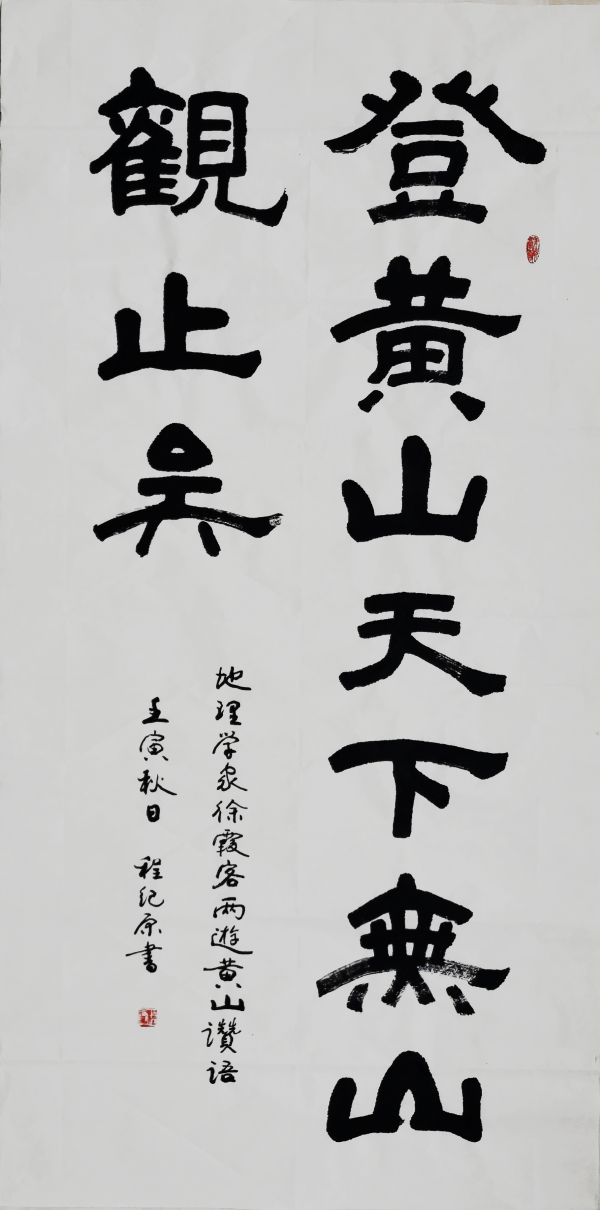 登黄山天下無山
觀止矣
地理学家徐霞客两遊黄山讚语
壬寅秋日 程纪原書